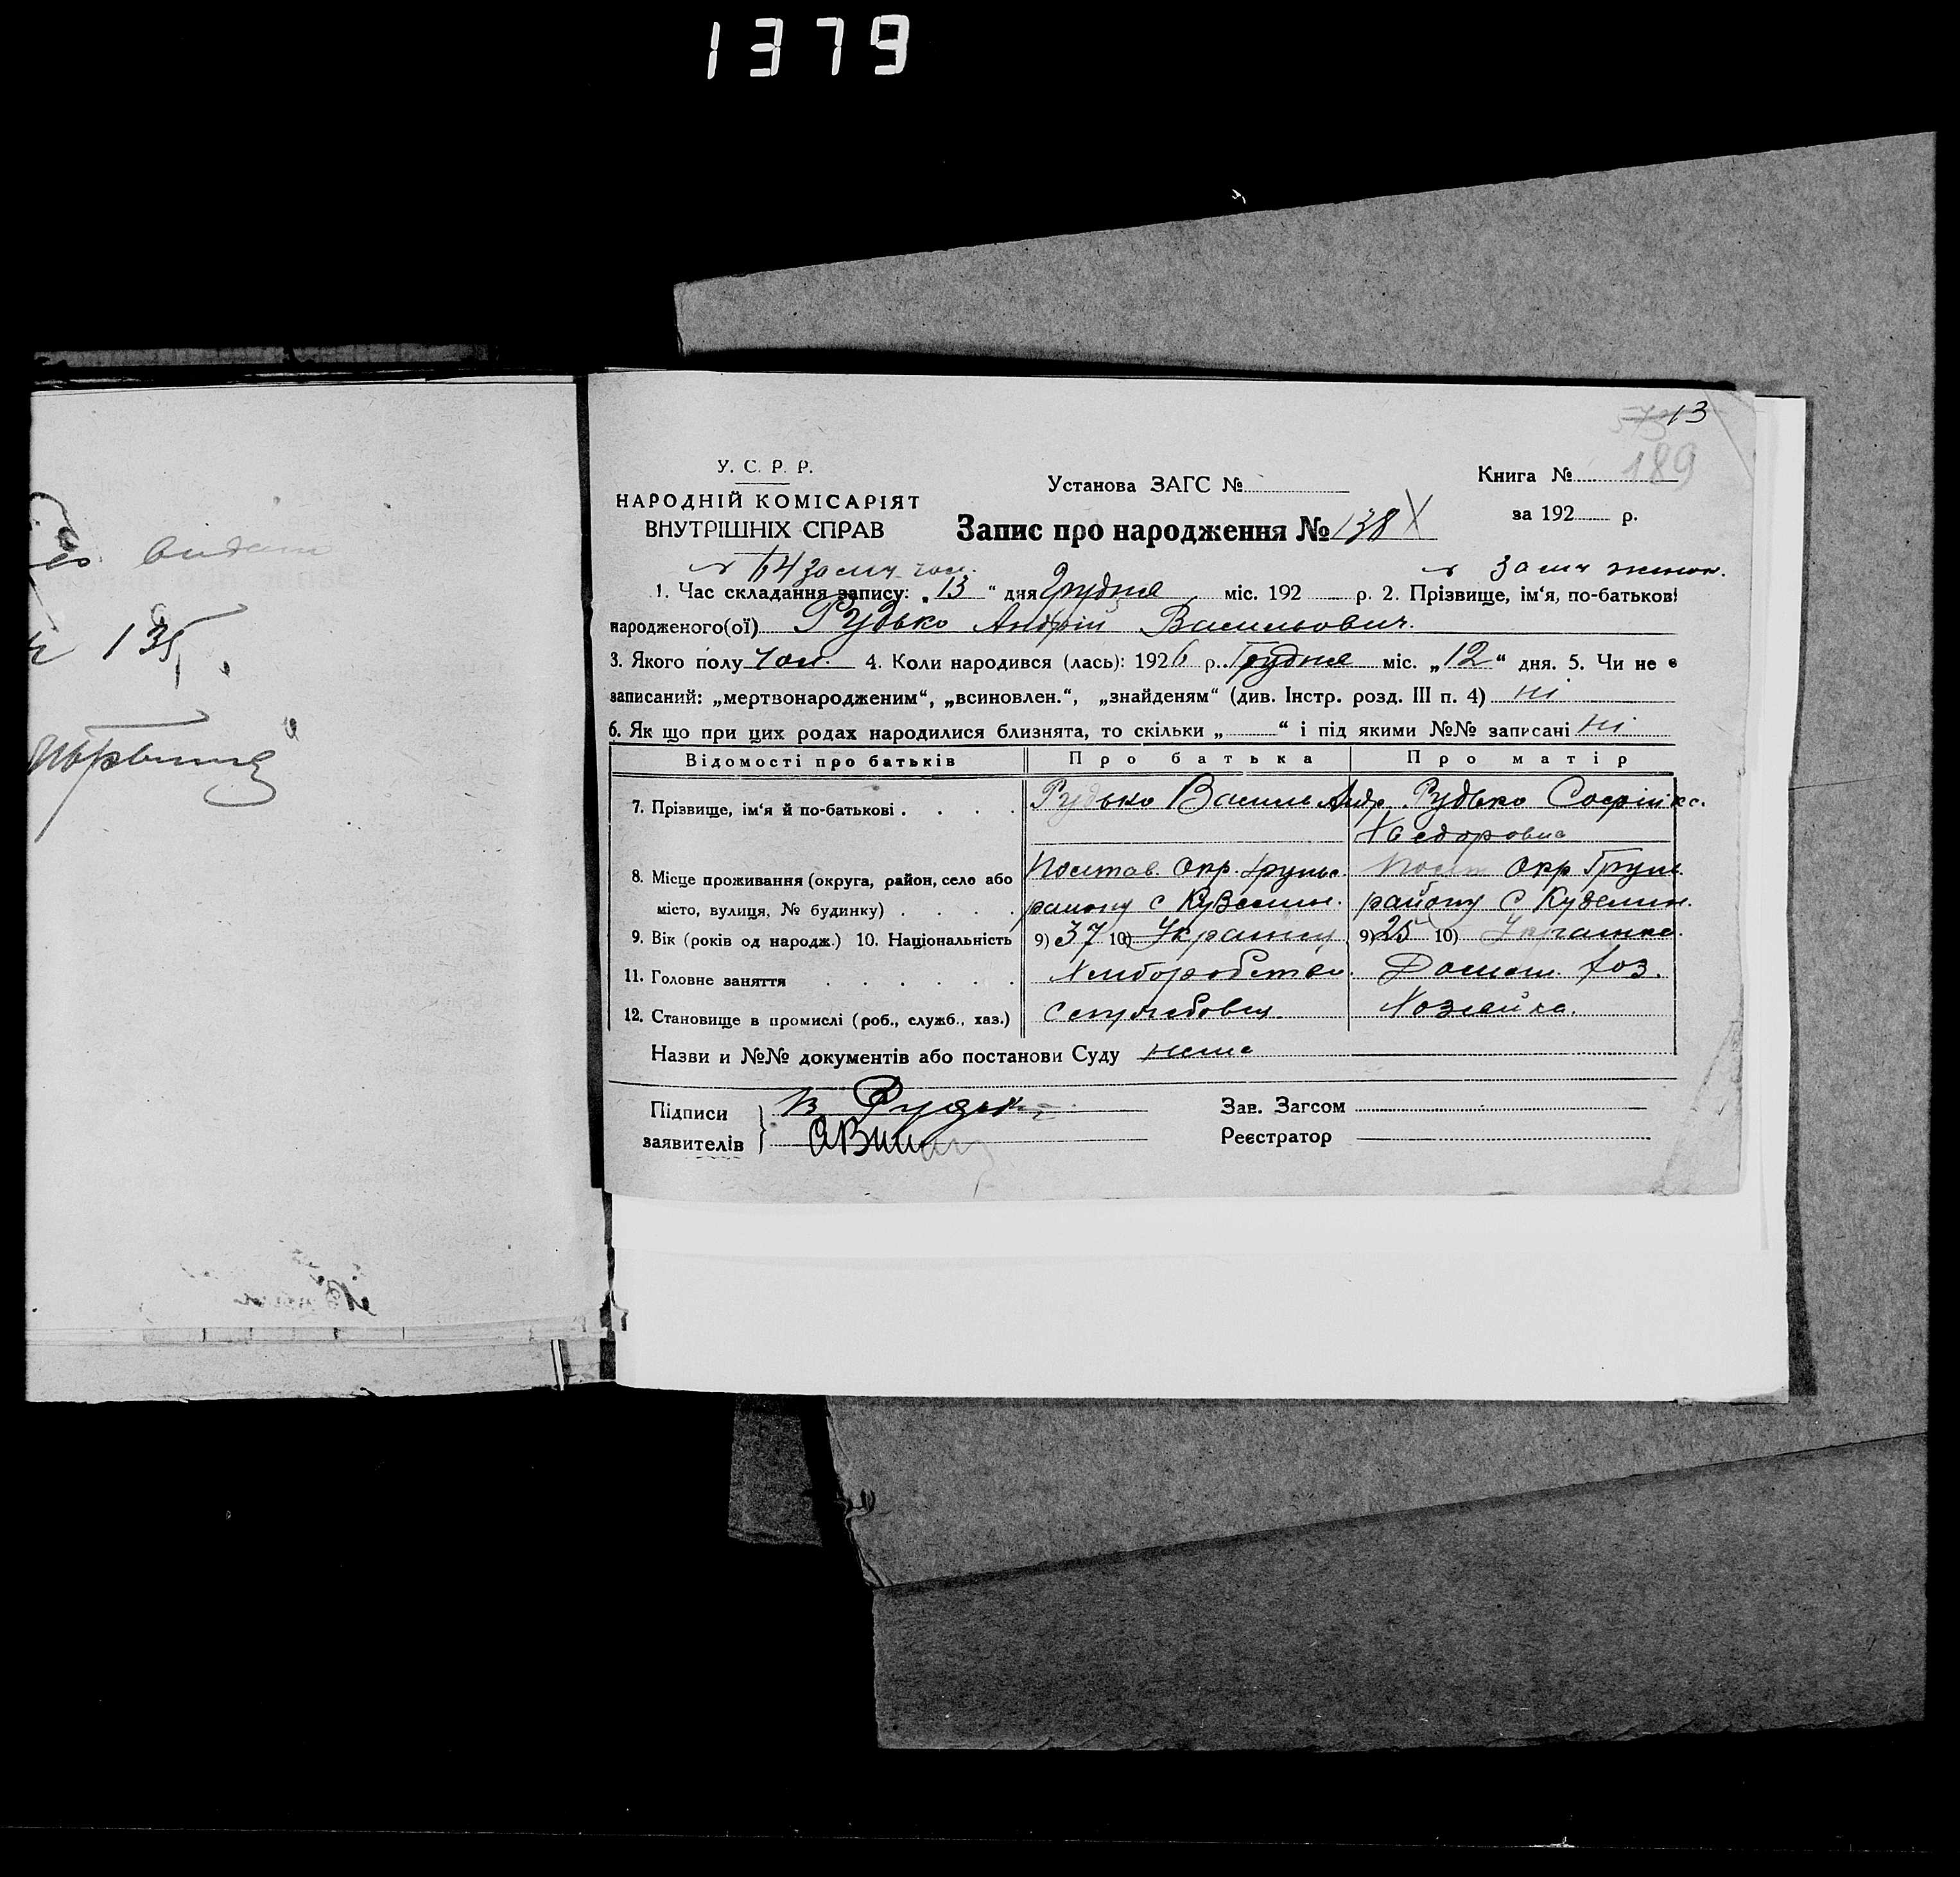 1379
13
189
У. С. Р. Р.
НАРОДНІЙ КОМІСАРІЯТ
ВНУТРІШНІХ СПРАВ
Установа ЗАГС №
Книга №
за 192 р.
Запис про народження № 138
1. Час складання запису: „13“ дня Грудня міс. 192 р. 2. Прізвище, ім‘я, по-батькові
народженого(ої) Рудько Андрій Васильович.
3. Якого полу чол. 4. Коли народився (лась): 1926 р. Грудня міс. „12“ дня. 5. Чи не є
записаний: „мертвонародженим“, „всиновлен.“, „знайденям“ (див. Інстр. розд. III п. 4) ні
6. Як що при цих родах народилися близнята, то скільки „ “ і під якими №№ записані ні
Відомості про батьків Про батька Про матір
7. Прізвище, ім‘я й по-батькові . . . . Рудько Василь Андр. Рудько Софійка.
Хведоровна
8. Місце проживання (округа, район, село або
місто, вулиця, № будинку) . . . . району с району С
9. Вік (років од народж.) 10. Національність 9) 37 10) Украинц 9) 25 10) Украинка.
11. Головне заняття . . . . . . Хлиборобство. Домаш. хоз.
12. Становище в промислі (роб., служб., хаз.) Хозяйка.
Назви и №№ документів або постанови Суду нема
Підписи
заявителів
В Рудько
Зав. Загсом
Реєстратор
видат
135